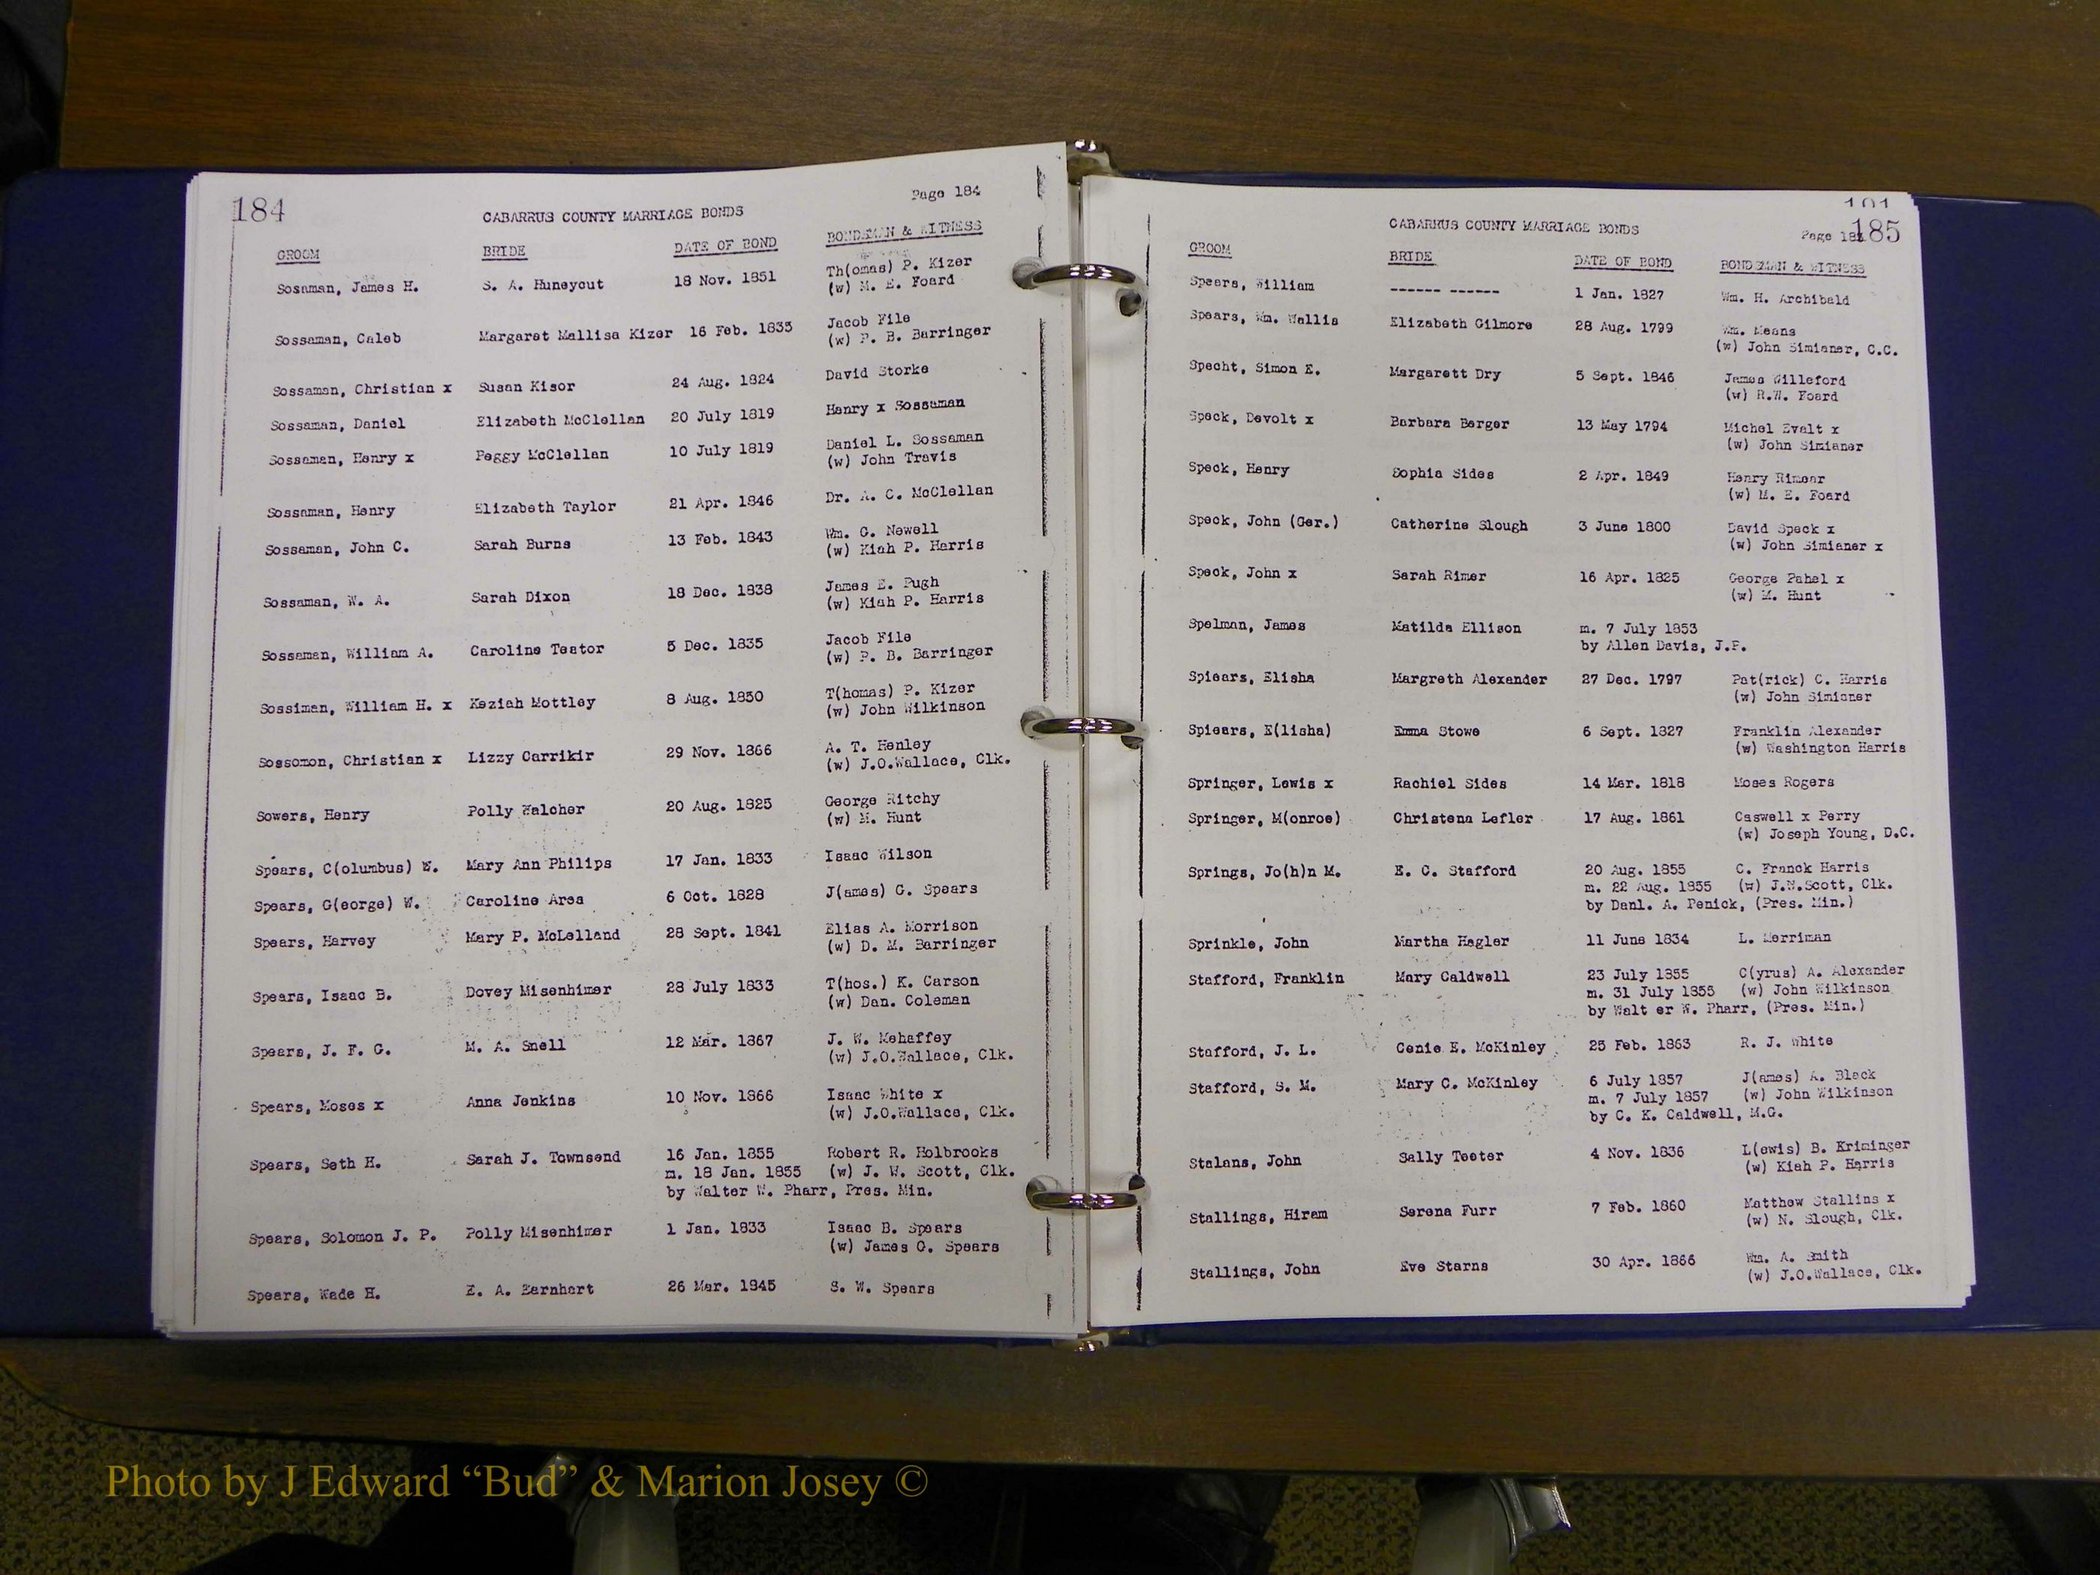 184
Page 184
CABARRUS COUNTY MARRIAGE BONDS
GROOM BRIDE DATE OF BOND BONDSMAN & WITNESS
Sosaman, James H. S. A. Huneycut 18 Nov. 1851 Th(omas) P. Kizer
(w) M. E. Foard
Sossaman, Caleb Margaret Mallisa Kizer 16 Feb. 1835 Jacob File
(w) P. B. Barringer
Sossaman, Christian x Susan Kisor 24 Aug. 1824 David Storke
Sossaman, Daniel Elizabeth McClellan 20 July 1819 Henry x Sossaman
Sossaman, Henry x Peggy McClellan 10 July 1819 Daniel L. Sossaman
(w) John Travis
Sossaman, Henry Elizabeth Taylor 21 Apr. 1846 Dr. A. C. McClellan
Sossaman, John C. Sarah Burns 13 Feb. 1843 Wm. G. Newell
(w) Kiah P. Harris
Sossaman, W. A. Sarah Dixon 18 Dec. 1838 James E. Pugh
(w) Kiah P. Harris
Sossaman, William A. Caroline Teator 5 Dec. 1835 Jacob File
(w) P. B. Barringer
Sossiman, William H. x Keziah Mottley 8 Aug. 1850 T(homas) P. Kizer
(w) John Wilkinson
Sossomon, Christian x Lizzy Carrikir 29 Nov. 1866 A. T. Henley
(w) J.O.Wallace, Clk.
Sowers, Henry Polly Walcher 20 Aug. 1825 George Ritchy
(w) M. Hunt
Spears, C(olumbus) W. Mary Ann Philips 17 Jan. 1833 Isaac Wilson
Spears, G(eorge) W. Caroline Area 6 Oct. 1828 J(ames) G. Spears
Spears, Harvey Mary P. McLelland 28 Sept. 1841 Elias A. Morrison
(w) D. M. Barringer
Spears, Isaac B. Dovey Misenhimer 28 July 1833 T(hos.) K. Carson
(w) Dan. Coleman
Spears, J. F. G. M. A. Snell 12 Mar. 1867 J. W. Mehaffey
(w) J.O.Wallace, Clk.
Spears, Moses x Anna Jenkins 10 Nov. 1866 Isaac White x
(w) J.O.Wallace, Clk.
Spears, Seth H. Sarah J. Townsend 16 Jan. 1855 Robert R. Holbrooks
m. 18 Jan. 1855 (w) J. W. Scott, Clk.
by Walter W. Pharr, Pres. Min.
Spears, Solomon J. P. Polly Misenhimer 1 Jan. 1833 Isaac B. Spears
(w) James G. Spears
Spears, Wade H. E. A. Earnhart 26 Mar. 1845 S. W. Spears
185
Page
CABARRUS COUNTY MARRIAGE BONDS
GROOM BRIDE DATE OF BOND BONDSMAN & WITNESS
Spears, William ------ ------ 1 Jan. 1827 Wm. H. Archibald
Spears, Wm. Wallis Elizabeth Gilmore 28 Aug. 1799 Wm. Means
(w) John Simianer, C.C.
Specht, Simon E. Margarett Dry 5 Sept. 1846 James Willeford
(w) R.W. Foard
Speck, Devolt x Barbara Barger 13 May 1794 Michel Evalt x
(w) John Simianer
Speck, Henry Sophia Sides 2 Apr. 1849 Henry Rimear
(w) M. E. Foard
Speck, John (Ger.) Catherine Slough 3 June 1800 David Speck x
(w) John Simianer x
Speck, John x Sarah Rimer 16 Apr. 1825 George Pahel x
(w) M. Hunt
Spelman, James Matilda Ellison m. 7 July 1853
by Allen Davis, J.P.
Spiears, Elisha Margreth Alexander 27 Dec. 1797 Pat(rick) C. Harris
(w) John Simianer
Spiears, E(lisha) Emma Stowe 6 Sept. 1827 Franklin Alexander
(w) Washington Harris
Springer, Lewis x Rachiel Sides 14 Mar. 1818 Moses Rogers
Springer, M(onroe) Christena Lefler 17 Aug. 1861 Caswell x Perry
(w) Joseph Young, D.C.
Springs, Jo(h)n M. E. C. Stafford 20 Aug. 1855 C. Franck Harris
m. 22 Aug. 1855 (w) J.N.Scott, Clk.
by Danl. A. Penick, (Pres. Min.)
Sprinkle, John Martha Hagler 11 June 1834 L. Merriman
Stafford, Franklin Mary Caldwell 23 July 1855 C(yrus) A. Alexander
m. 31 July 1855 (w) John Wilkinson
by Walt er W. Pharr, (Pres. Min.)
Stafford, J. L. Cenie E. McKinley 25 Feb. 1863 R. J. White
Stafford, S. M. Mary C. McKinley 6 July 1857 J(ames) A. Black
m. 7 July 1857 (w) John Wilkinson
by C. K. Caldwell, M.G.
Stalans, John Sally Teeter 4 Nov. 1836 L(ewis) B. Kriminger
(w) Kiah P. Harris
Stallings, Hiram Serena Furr 7 Feb. 1860 Matthew Stallins x
(w) N. Slough, Clk.
Stallings, John Eve Starns 30 Apr. 1866 Wm. A. Smith
(w) J.O.Wallace, Clk.
Photo by J Edward “Bud” & Marion Josey ©